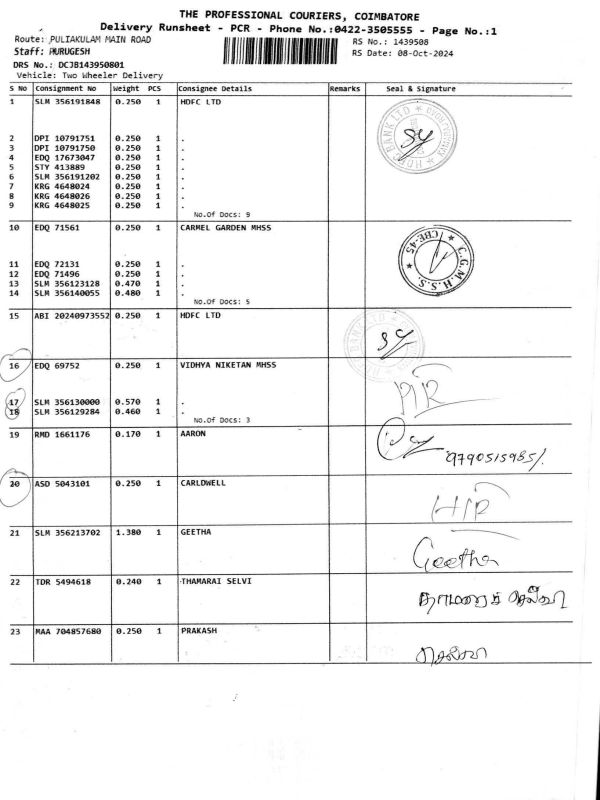 THE PROFESSIONAL COURIERS, COIMBATORE
Delivery Runsheet - PCR - Phone No.:0422-3505555 - Page No.:1
Route: PULIAKULAM MAIN ROAD
RS No.: 1439508
Staff: MURUGESH
RS Date: 08-Oct-2024
DRS No.: DCJB143950801
Vehicle: Two Wheeler Delivery
S No Consignment No Weight PCS Consignee Details Remarks Seal & Signature
1 SLM 356191848 0.250 1 HDFC LTD
HDFC BANK LTD
2 DPI 10791751 0.250 1 .
3 DPI 10791750 0.250 1 .
4 EDQ 17673047 0.250 1 .
5 STY 413889 0.250 1 .
6 SLM 356191202 0.250 1 .
7 KRG 4648024 0.250 1 .
8 KRG 4648026 0.250 1 .
9 KRG 4648025 0.250 1 .
No.Of Docs: 9
10 EDQ 71561 0.250 1 CARMEL GARDEN MHSS
C.G.M.H.S.S. CBE-45
11 EDQ 72131 0.250 1 .
12 EDQ 71496 0.250 1 .
13 SLM 356123128 0.470 1 .
14 SLM 356140055 0.480 1 .
No.Of Docs: 5
15 ABI 20240973552 0.250 1 HDFC LTD
16 EDQ 69752 0.250 1 VIDHYA NIKETAN MHSS
17 SLM 356130000 0.570 1 .
18 SLM 356129284 0.460 1 .
No.Of Docs: 3
19 RMD 1661176 0.170 1 AARON
9790515985/.
20 ASD 5043101 0.250 1 CARLDWELL
21 SLM 356213702 1.380 1 GEETHA
Geetha
22 TDR 5494618 0.240 1 THAMARAI SELVI
தாமரைச் செல்வி
23 MAA 704857680 0.250 1 PRAKASH